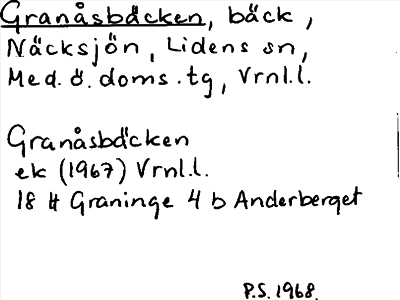 Granåsbäcken, bäck,
Näcksjön, Lidens sn,
Med. ö. doms. tg, Vrnl.l.
Granåsbäcken
ek (1967) Vrnl.l.
18 H Graninge 4 b Anderberget
P.S. 1968.